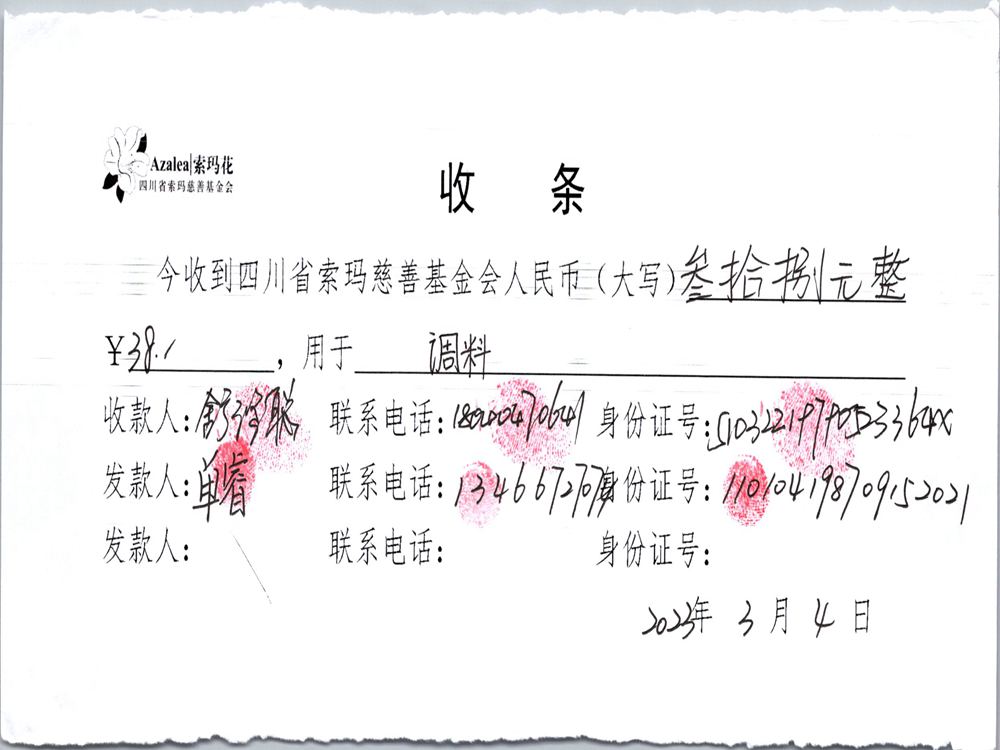 Azalea|索玛花
四川省索玛慈善基金会
收 条
今收到四川省索玛慈善基金会人民币（大写）叁拾捌元整
¥38.1，用于 调料
收款人: 联系电话: 身份证号:
发款人:单睿 联系电话: 身份证号:110104198709152021
发款人: 联系电话: 身份证号:
2023年 3 月 4 日